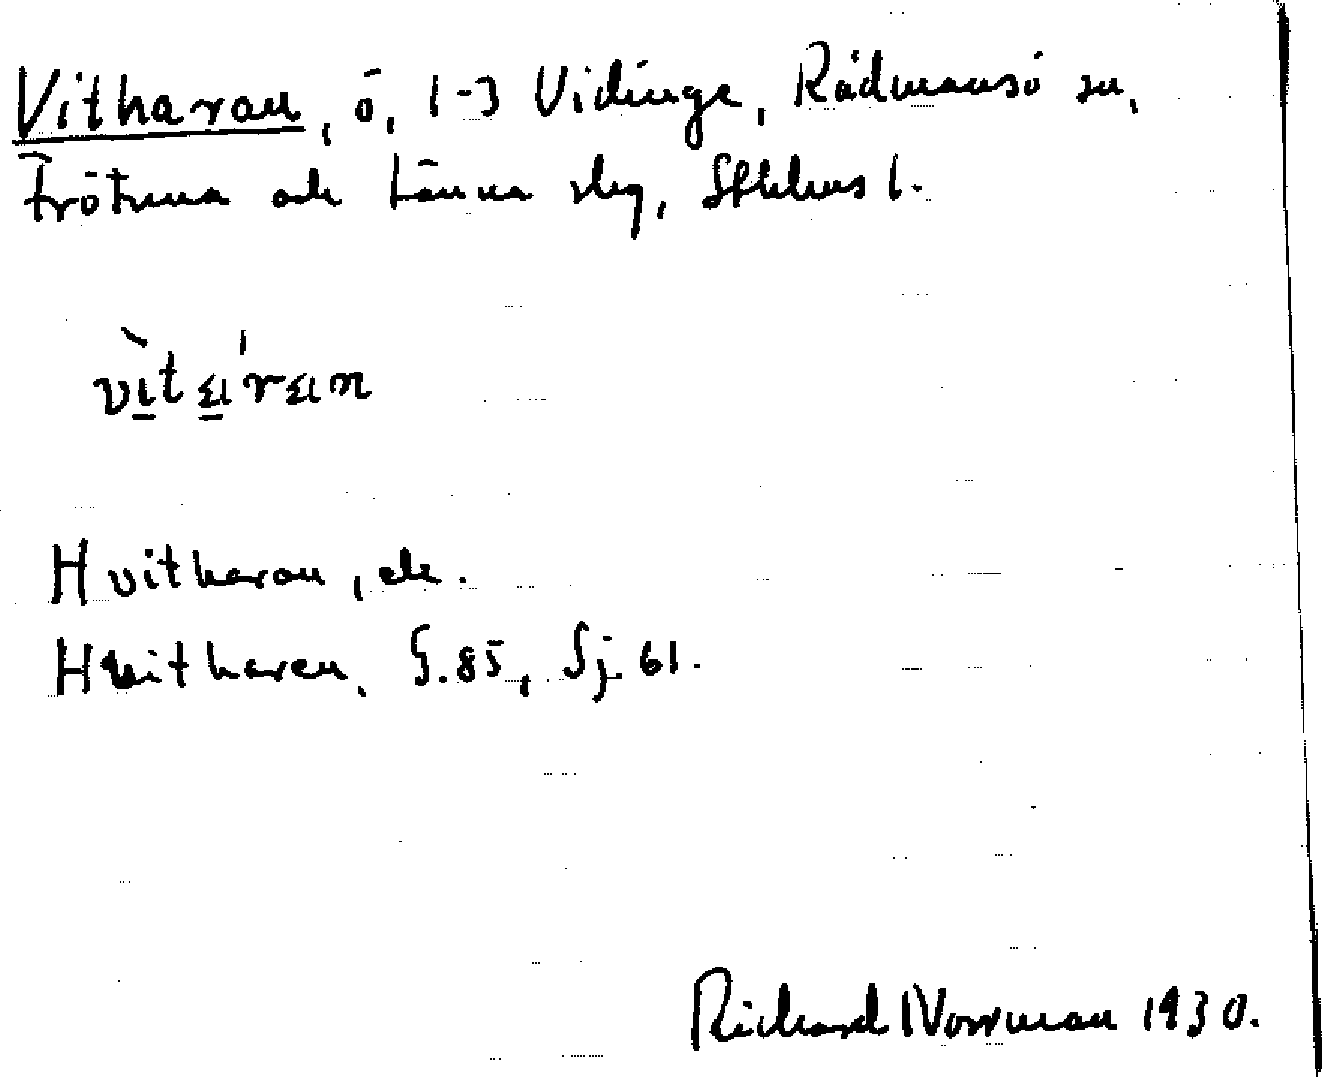 Vitharan, ö, 1-3 Vidinge, Rådmansö sn,
Frötuna och Länna slg, Sthlms l.
Hvitharan, ek.
Hvitharen, G.85, Sj. 61.
Richard Norrman 1930.